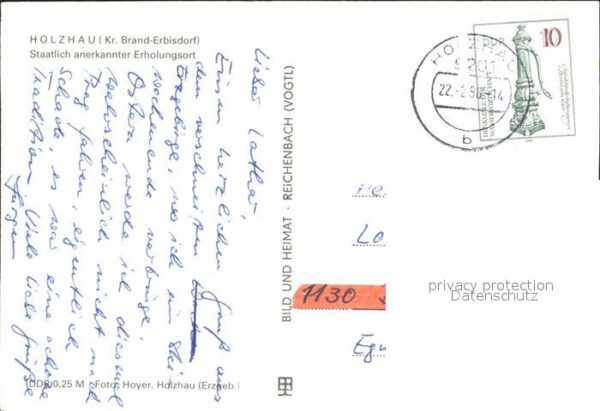 HOLZHAU (Kr. Brand-Erbisdorf)
Staatlich anerkannter Erholungsort
Lieber Lothar,
Einen herzlichen Gruß aus
dem verschneiten
Erzgebirge, wo ich ein Ski-
wochenende verbringe.
Ostern werde ich diesmal
wahrscheinlich nicht nach
fahren, eigentlich
Schade, es war eine schöne
Tradition. Viele liebe Grüße
Jürgen
DDR 0,25 M Foto: Hoyer, Holzhau (Erzgeb.)
BILD UND HEIMAT · REICHENBACH (VOGTL)
HOLZHAU
9201
22.-2.
b
DDR
10
He
Lo
1130
Eg
privacy protection
Datenschutz